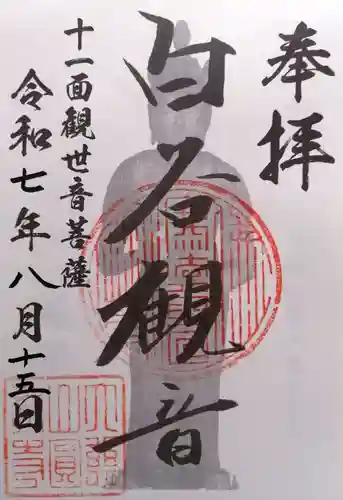 奉拝
白岩観音
十一面観世音菩薩
令和七年八月十五日